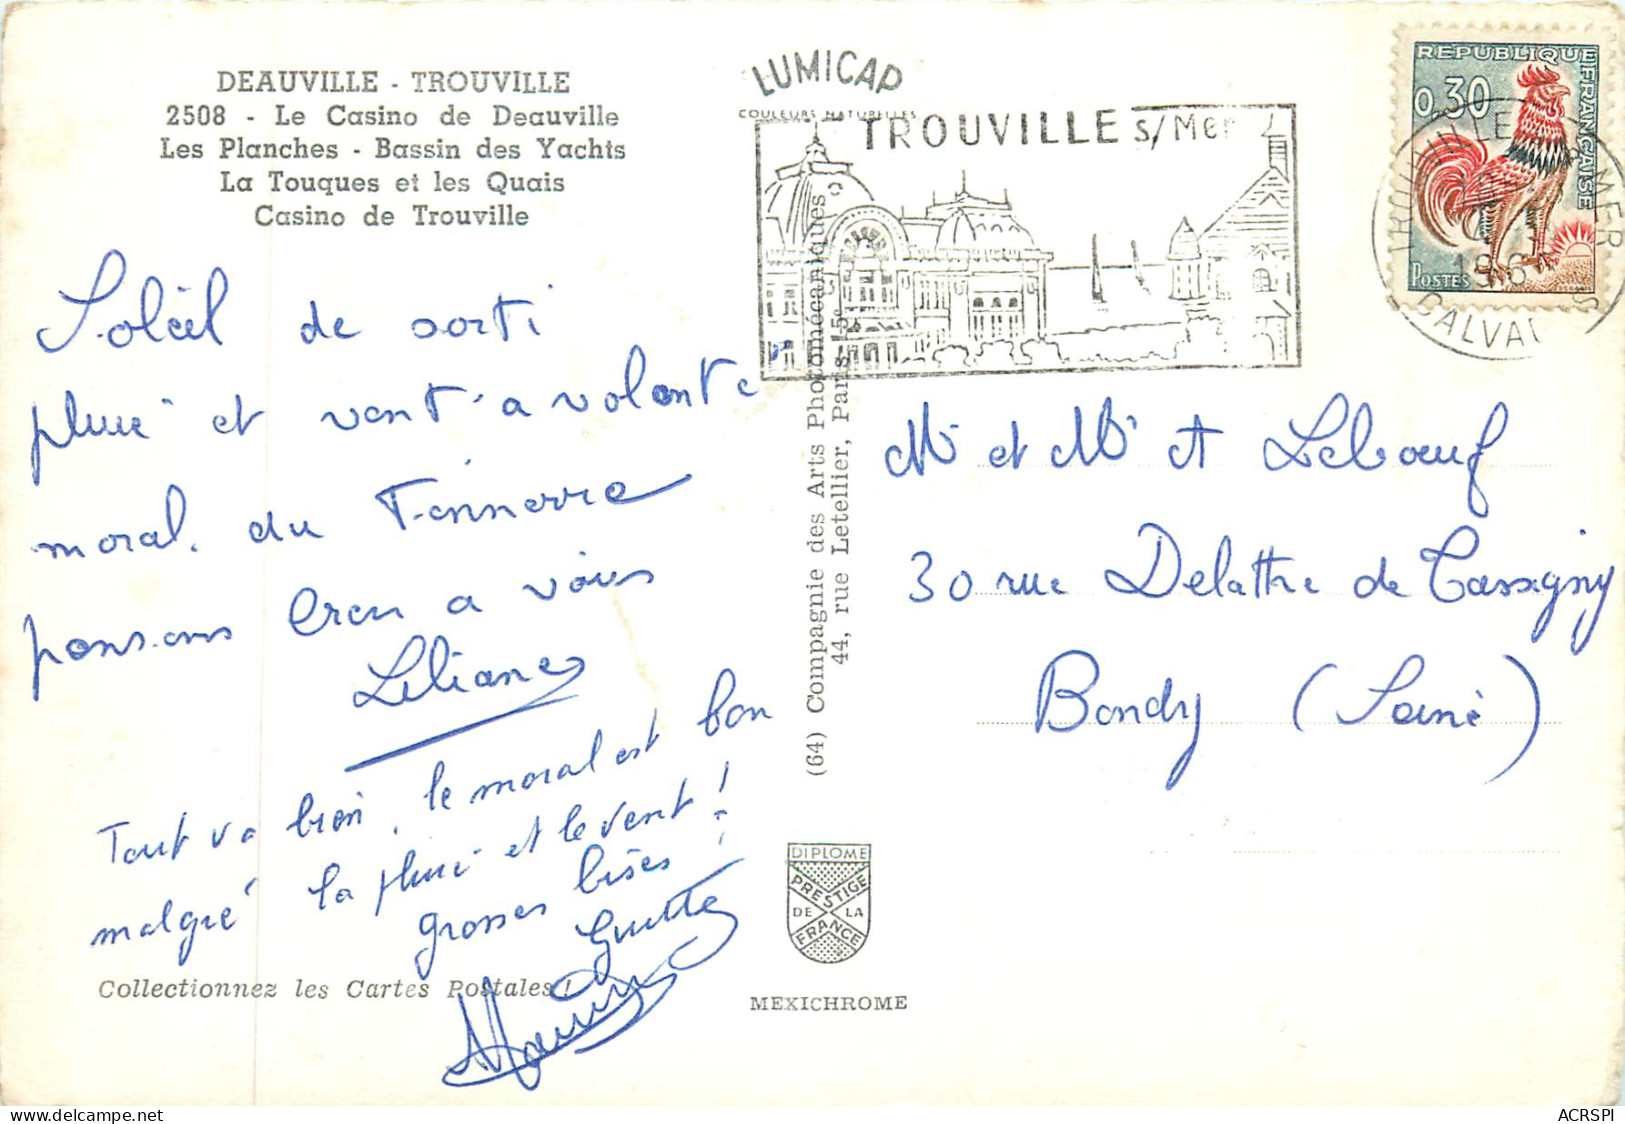 DEAUVILLE - TROUVILLE
2508 - Le Casino de Deauville
Les Planches - Bassin des Yachts
La Touques et les Quais
Casino de Trouville
Soleil de sorti
pluie et vent a volonte
moral du Tonnerre
pensons bien a vous
Liliane
Tout va bien, le moral est bon
malgré la pluie et le vent !
grosses bises !
Guitte
Collectionnez les Cartes Postales !
LUMICAP
COULEURS NATURELLES
TROUVILLE s/Mer
(64) Compagnie des Arts Photomécaniques
44, rue Letellier, Paris-15e
DIPLOME
PRESTIGE
DE LA
FRANCE
MEXICHROME
REPUBLIQUE FRANCAISE
0,30
POSTES
TROUVILLE S MER
1964
CALVADOS
Mr et Me A Leboeuf
30 rue Delattre de Tassigny
Bondy (Seine)
ACRSPI